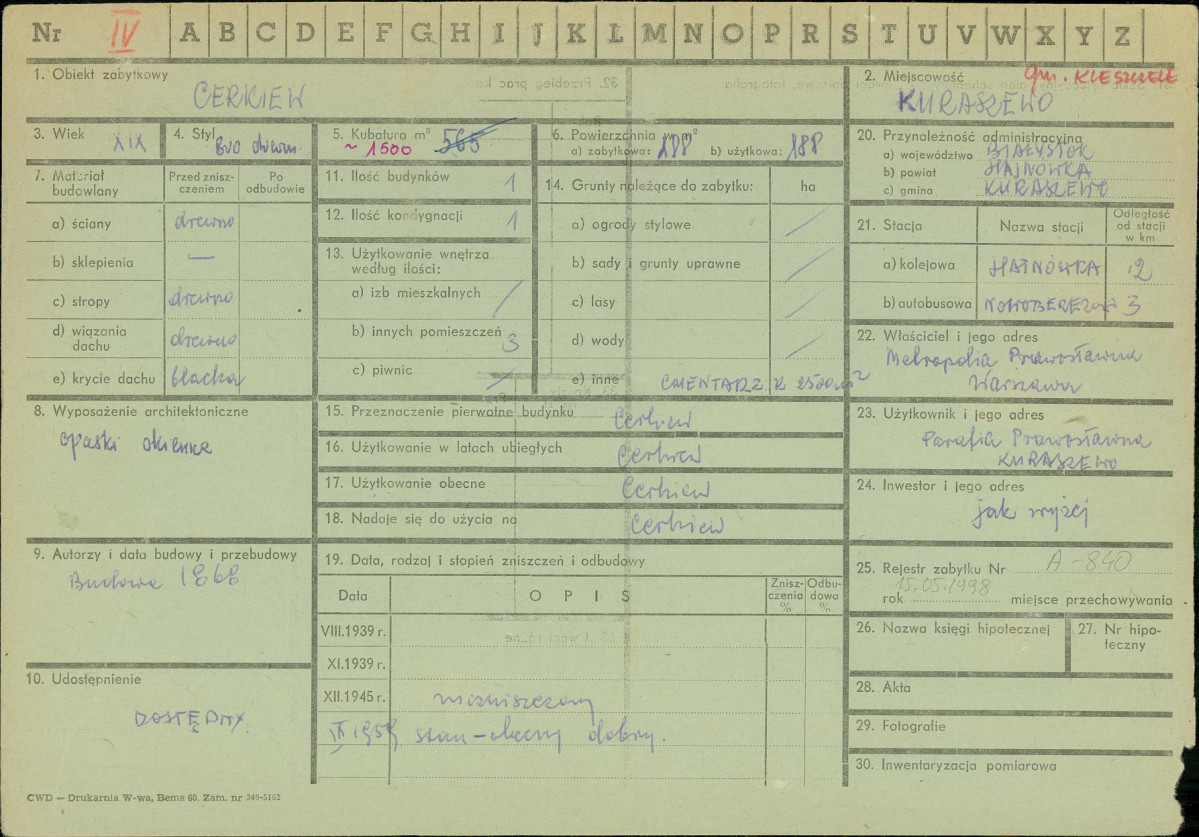 Nr IV A B C D E F G H I J K L M N O P R S T U V W X Y Z
1. Obiekt zabytkowy
CERKIEW
2. Miejscowość gm. KLESZCZELE
KURASZEWO
3. Wiek XIX
4. Styl
5. Kubatura m³ 565
~ 1500
6. Powierzchnia w m²
a) zabytkowa: 188 b) użytkowa: 188
7. Materiał budowlany
Przed znisz-
czeniem
Po
odbudowie
a) ściany drewno
b) sklepienia —
c) stropy drewno
d) wiązania
dachu drewno
e) krycie dachu blacha
8. Wyposażenie architektoniczne
opaski okienne
9. Autorzy i data budowy i przebudowy
Budowa 1868
10. Udostępnienie
DOSTĘPNY.
11. Ilość budynków 1
12. Ilość kondygnacji 1
13. Użytkowanie wnętrza
według ilości:
a) izb mieszkalnych /
b) innych pomieszczeń 3
c) piwnic /
14. Grunty należące do zabytku: ha
a) ogrody stylowe /
b) sady i grunty uprawne /
c) lasy /
d) wody /
e) inne CMENTARZ. k 2500 m²
15. Przeznaczenie pierwotne budynku Cerkiew
16. Użytkowanie w latach ubiegłych Cerkiew
17. Użytkowanie obecne Cerkiew
18. Nadaje się do użycia na Cerkiew
19. Data, rodzaj i stopień zniszczeń i odbudowy
Data OPIS
Znisz-
czenia
%
Odbu-
dowa
%
VIII.1939 r.
XI.1939 r.
XII.1945 r. niezniszczony
IX 1959 stan - obecny dobry.
20. Przynależność administracyjna
a) województwo BIAŁYSTOK
b) powiat HAJNÓWKA
c) gmina KURASZEWO
21. Stacja Nazwa stacji
Odległość
od stacji
w km
a) kolejowa HAJNÓWKA 12
b) autobusowa NOWOBEREZOWO 3
22. Właściciel i jego adres
Metropolia Prawosławna
Warszawa
23. Użytkownik i jego adres
Parafia Prawosławna
KURASZEWO
24. Inwestor i jego adres
jak wyżej
25. Rejestr zabytku Nr A-840
15.05.1998
rok miejsce przechowywania
26. Nazwa księgi hipotecznej
27. Nr hipo-
teczny
28. Akta
29. Fotografie
30. Inwentaryzacja pomiarowa
CWD — Drukarnia W-wa, Bema 60. Zam. nr 349-5162